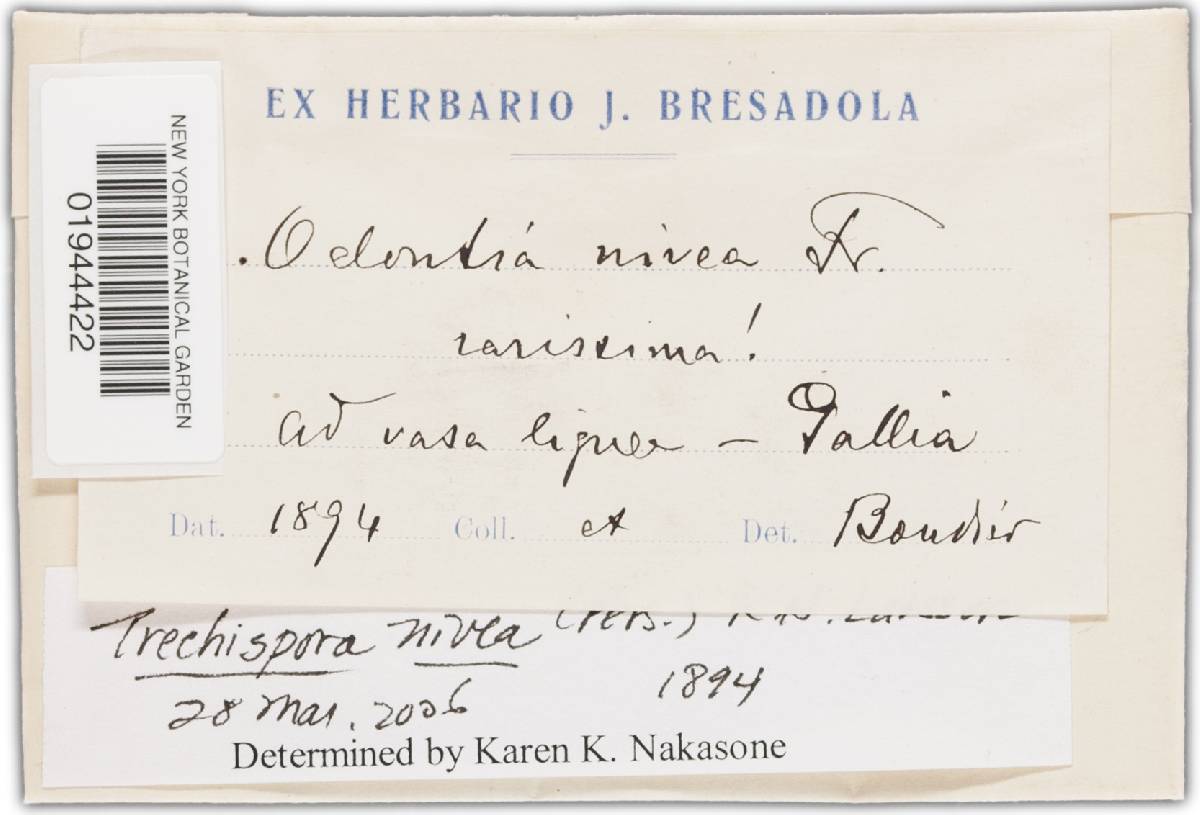 NEW YORK BOTANICAL GARDEN
01944422
EX HERBARIO J. BRESADOLA
Odontia nivea Fr.
rarissima!
ad vasa lignea – Gallia
Dat. 1894 Coll. et Det. Boudier
Trechispora nivea (Pers.) K.H. Larsson
28 Mar. 2006 1894
Determined by Karen K. Nakasone